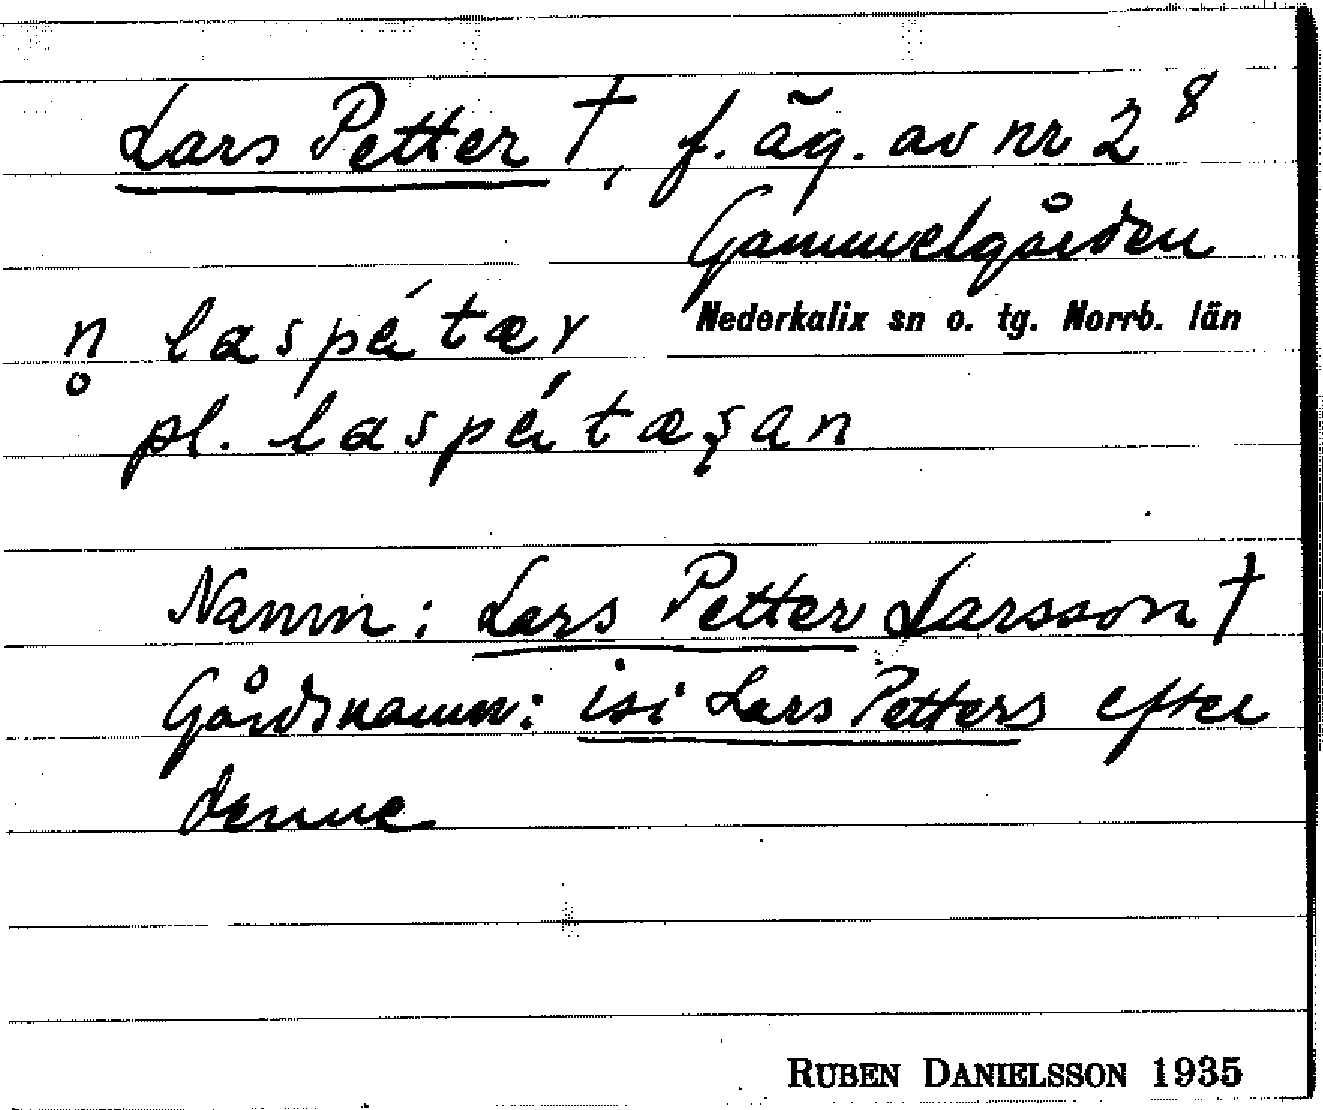 Lars Petter †, f. äg. av nr 2⁸
Gammelgården
Nederkalix sn o. tg. Norrb. län
n̥ laspé tær
pl. laspé tæʂan
Namn: Lars Petter Larsson †
Gårdsnamn: isi Lars Petters efter
denne
RUBEN DANIELSSON 1935